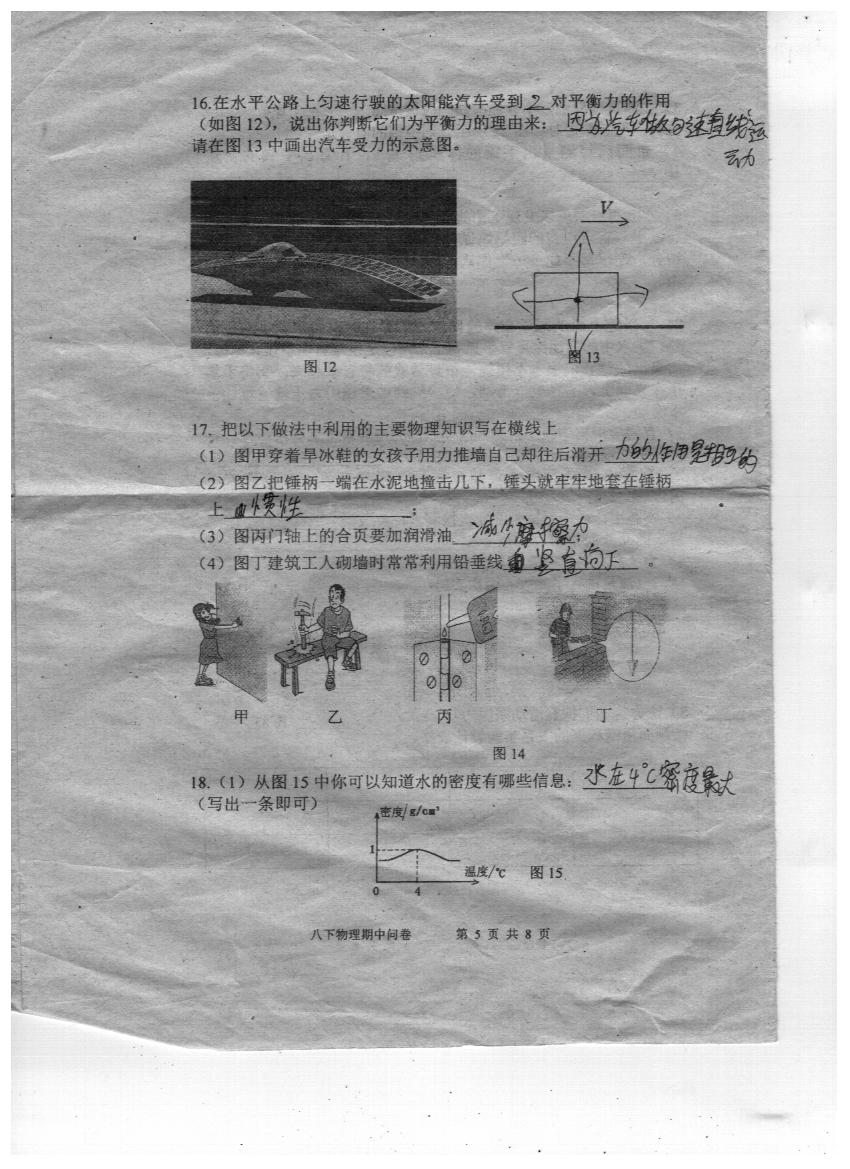 16.在水平公路上匀速行驶的太阳能汽车受到 2 对平衡力的作用
（如图12），说出你判断它们为平衡力的理由来： 因为汽车做匀速直线运
动
请在图 13 中画出汽车受力的示意图。
V
图 12
图 13
17. 把以下做法中利用的主要物理知识写在横线上
（1）图甲穿着旱冰鞋的女孩子用力推墙自己却往后滑开 力的作用是相互的
（2）图乙把锤柄一端在水泥地撞击几下，锤头就牢牢地套在锤柄
上 惯性 ；
（3）图丙门轴上的合页要加润滑油 减小摩擦力；
（4）图丁建筑工人砌墙时常常利用铅垂线 竖直向下 。
甲 乙 丙 丁
图 14
18.（1）从图 15 中你可以知道水的密度有哪些信息： 水在4℃密度最大
（写出一条即可）
密度/g/cm³
1
温度/℃
图 15.
0 4
八下物理期中问卷 第 5 页 共 8 页